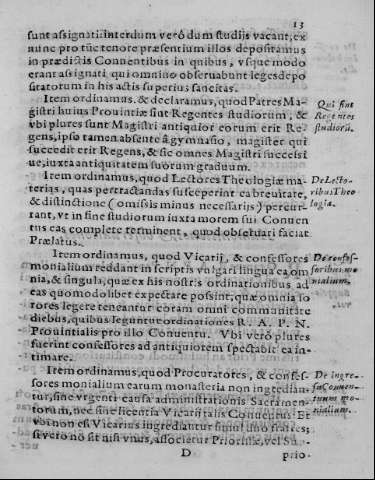 13
sunt assignati. Interdum verò dum studijs vacant, ex
nunc pro tūc tenore præsentium illos depositamus
in prædictis Conuentibus in quibus, vsque modo
erant assignati qui omnino obseruabunt leges depo
sitatorum in his actis superius sancitas.
Item ordinamus, & declaramus, quod Patres Ma-
gistri huius Prouintiæ sint Regentes studiorum, &
vbi plures sunt Magistri antiquior eorum erit Re-
gens, ipso tamen absente à gymnasio, magister qui
succedit erit Regens, & sic omnes Magistri successi
ue, iuxta antiquitatem suorum graduum.
Qui sint
Regentes
studiorū.
Item ordinamus, quod Lectores Theologiæ ma-
terias, quas pertractandas susceperint ea breuitate,
& distinctione (omissis minus necessarijs) percur-
rant, vt in fine studiorum iuxta morem sui Conuen
tus eas complete terminent, quod obseruari faciat
Prælatus.
De Lecto-
ribus Theo
logiæ.
Item ordinamus, quod Vicarij, & confessores
monialium reddant in scriptis vulgari lingua ea om
nia, & singula, quæ ex his nostris ordinationibus ad
eas quomodolibet expectare possint, quæ omnia so
rores legere teneantur coram omni communitate
diebus, quibus leguntur ordinationes R. A. P. N.
Prouintialis pro illo Conuentu. Vbi verò plures
fuerint confessores ad antiquiorem spectabit ea in-
timare.
De confes-
soribus mo
nialium.
Item ordinamus, quod Procuratores, & confes-
sores monialium earum monasteria non ingredian-
tur, sine vrgenti causa administrationis Sacramen-
torum, nec sine licentia Vicarij talis Conuentus Et
vbi non est Vicarius ingrediantur simul duo fratres;
si verò nō sit nisi vnus, associetur Priorissæ, vel Su
De ingre-
su Conuen-
tuum mo-
nialium.
D
prio-